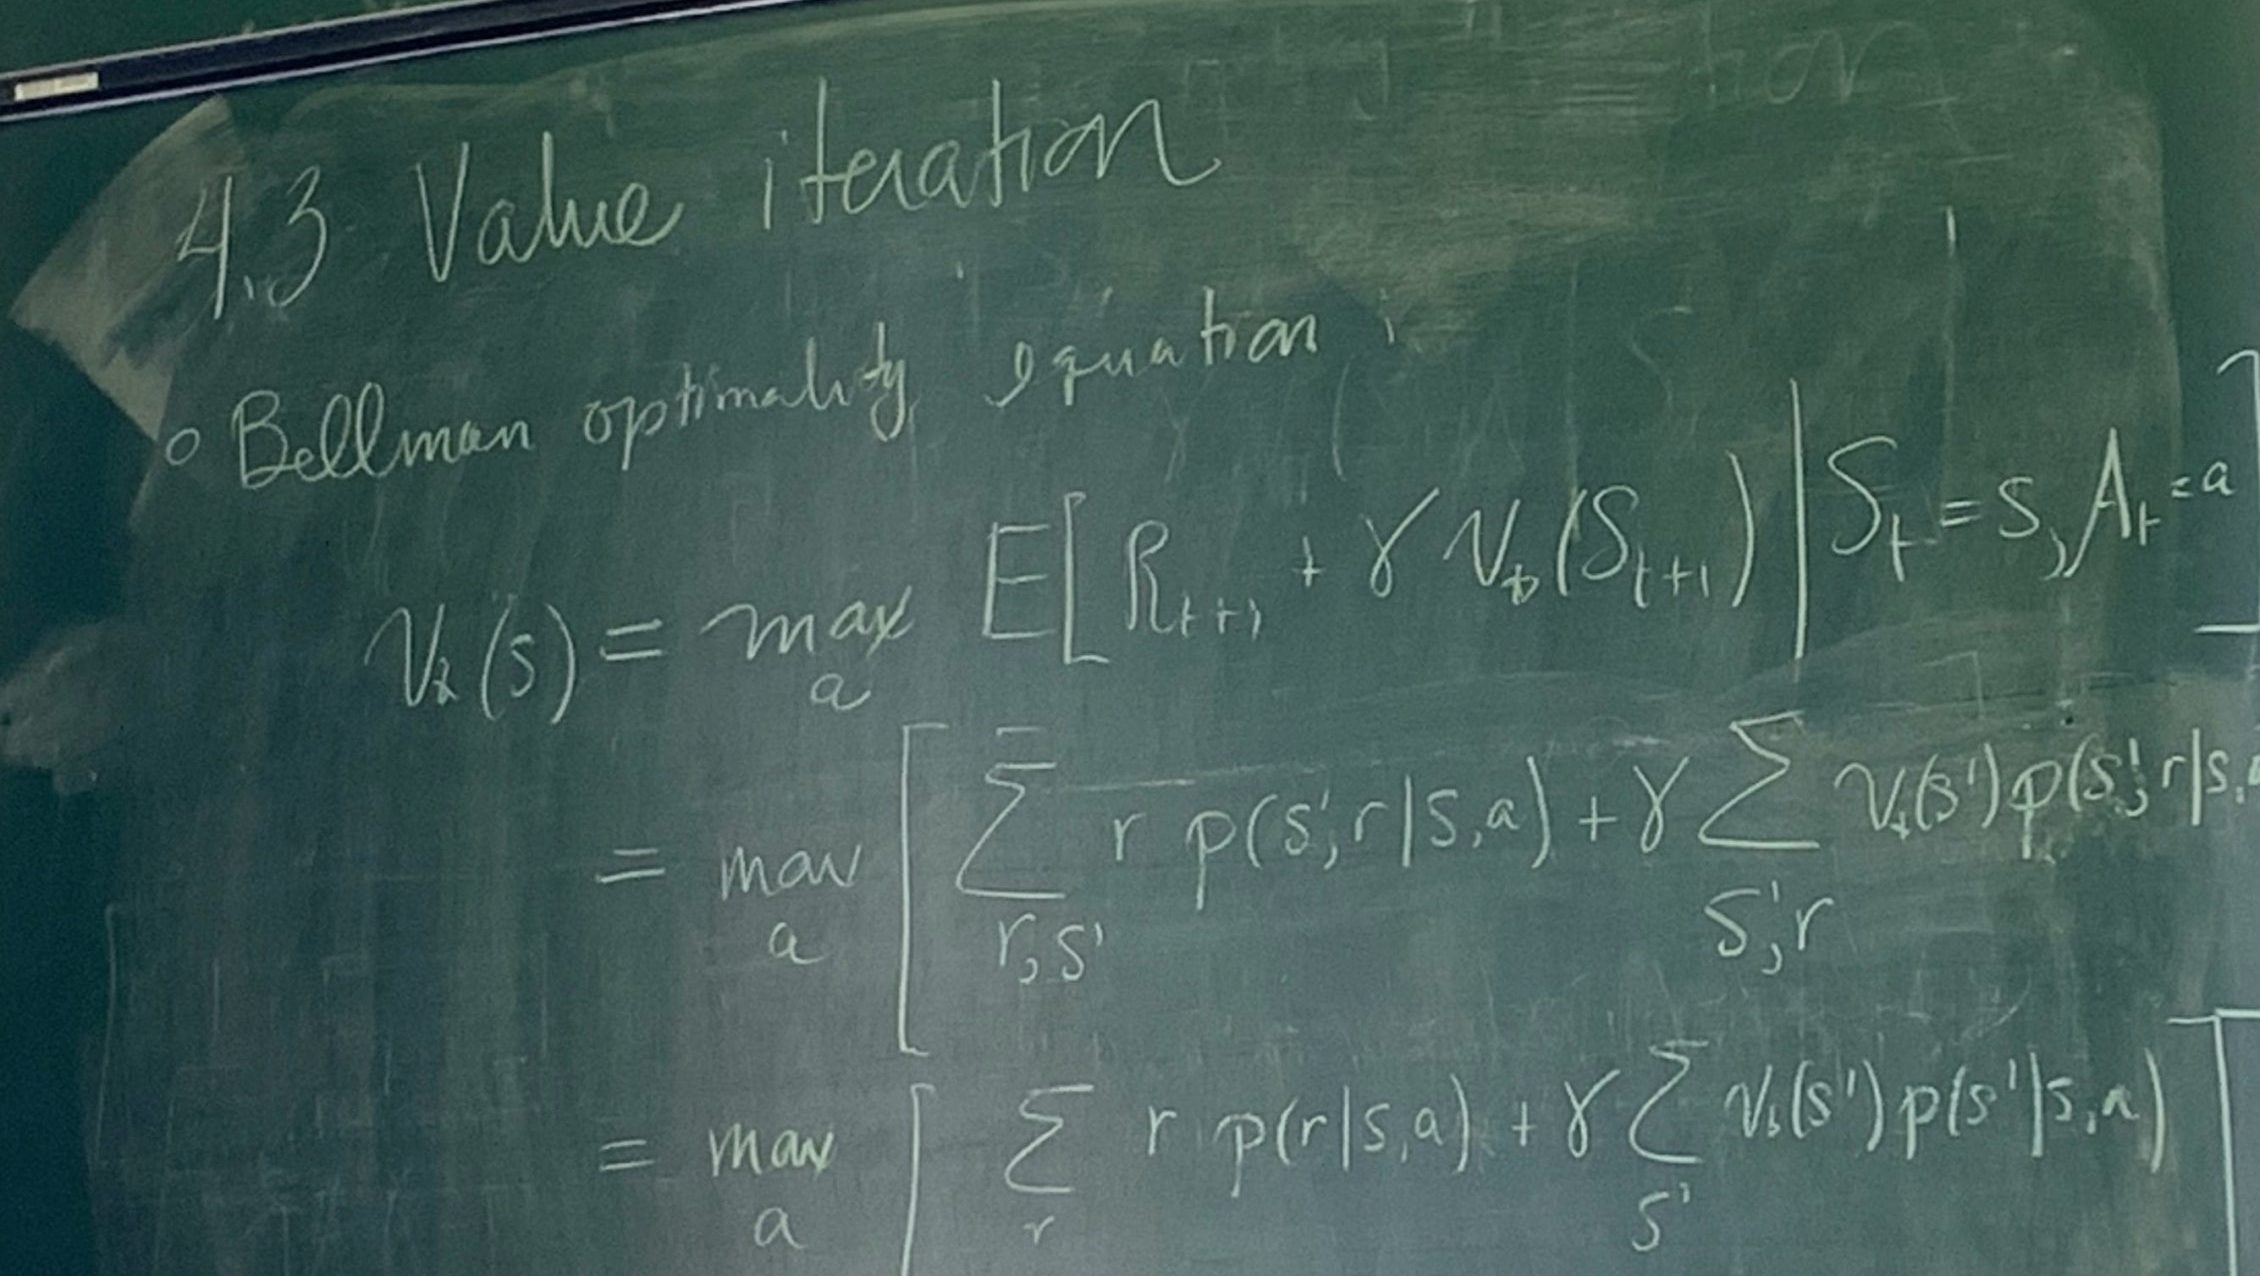 4.3 Value iteration
o Bellman optimality equation :
V*(s) = max_a E[R_{t+1} + γ V*(S_{t+1}) | S_t = s, A_t = a]
= max_a [ Σ_{r,s'} r p(s',r|s,a) + γ Σ_{s',r} V*(s') p(s',r|s,
= max_a [ Σ_r r p(r|s,a) + γ Σ_{s'} V*(s') p(s'|s,a) ]